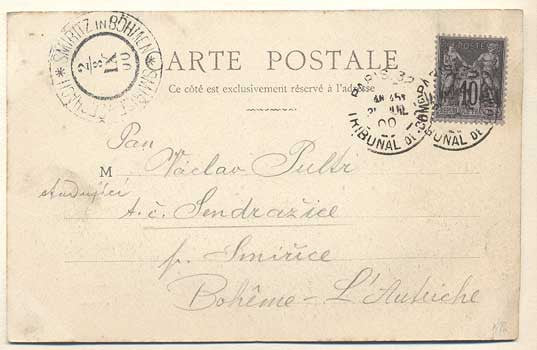 SMIRITZ IN BÖHMEN
2/8
IX
00
CARTE POSTALE
Ce côté est exclusivement réservé à l'adresse
PARIS. 32
00
TRIBUNAL DE COM
POSTE
10
Pan
M Václav Pultr
studující
t. č. Sendražice
p. Smiřice
Bohême – L'Autriche